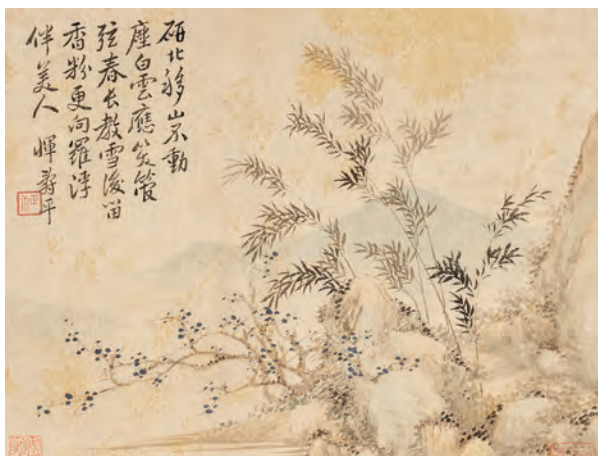 研北移山不動
塵白雲應笑管
弦春長教雪後留
香粉更向羅浮
伴美人 惲壽平